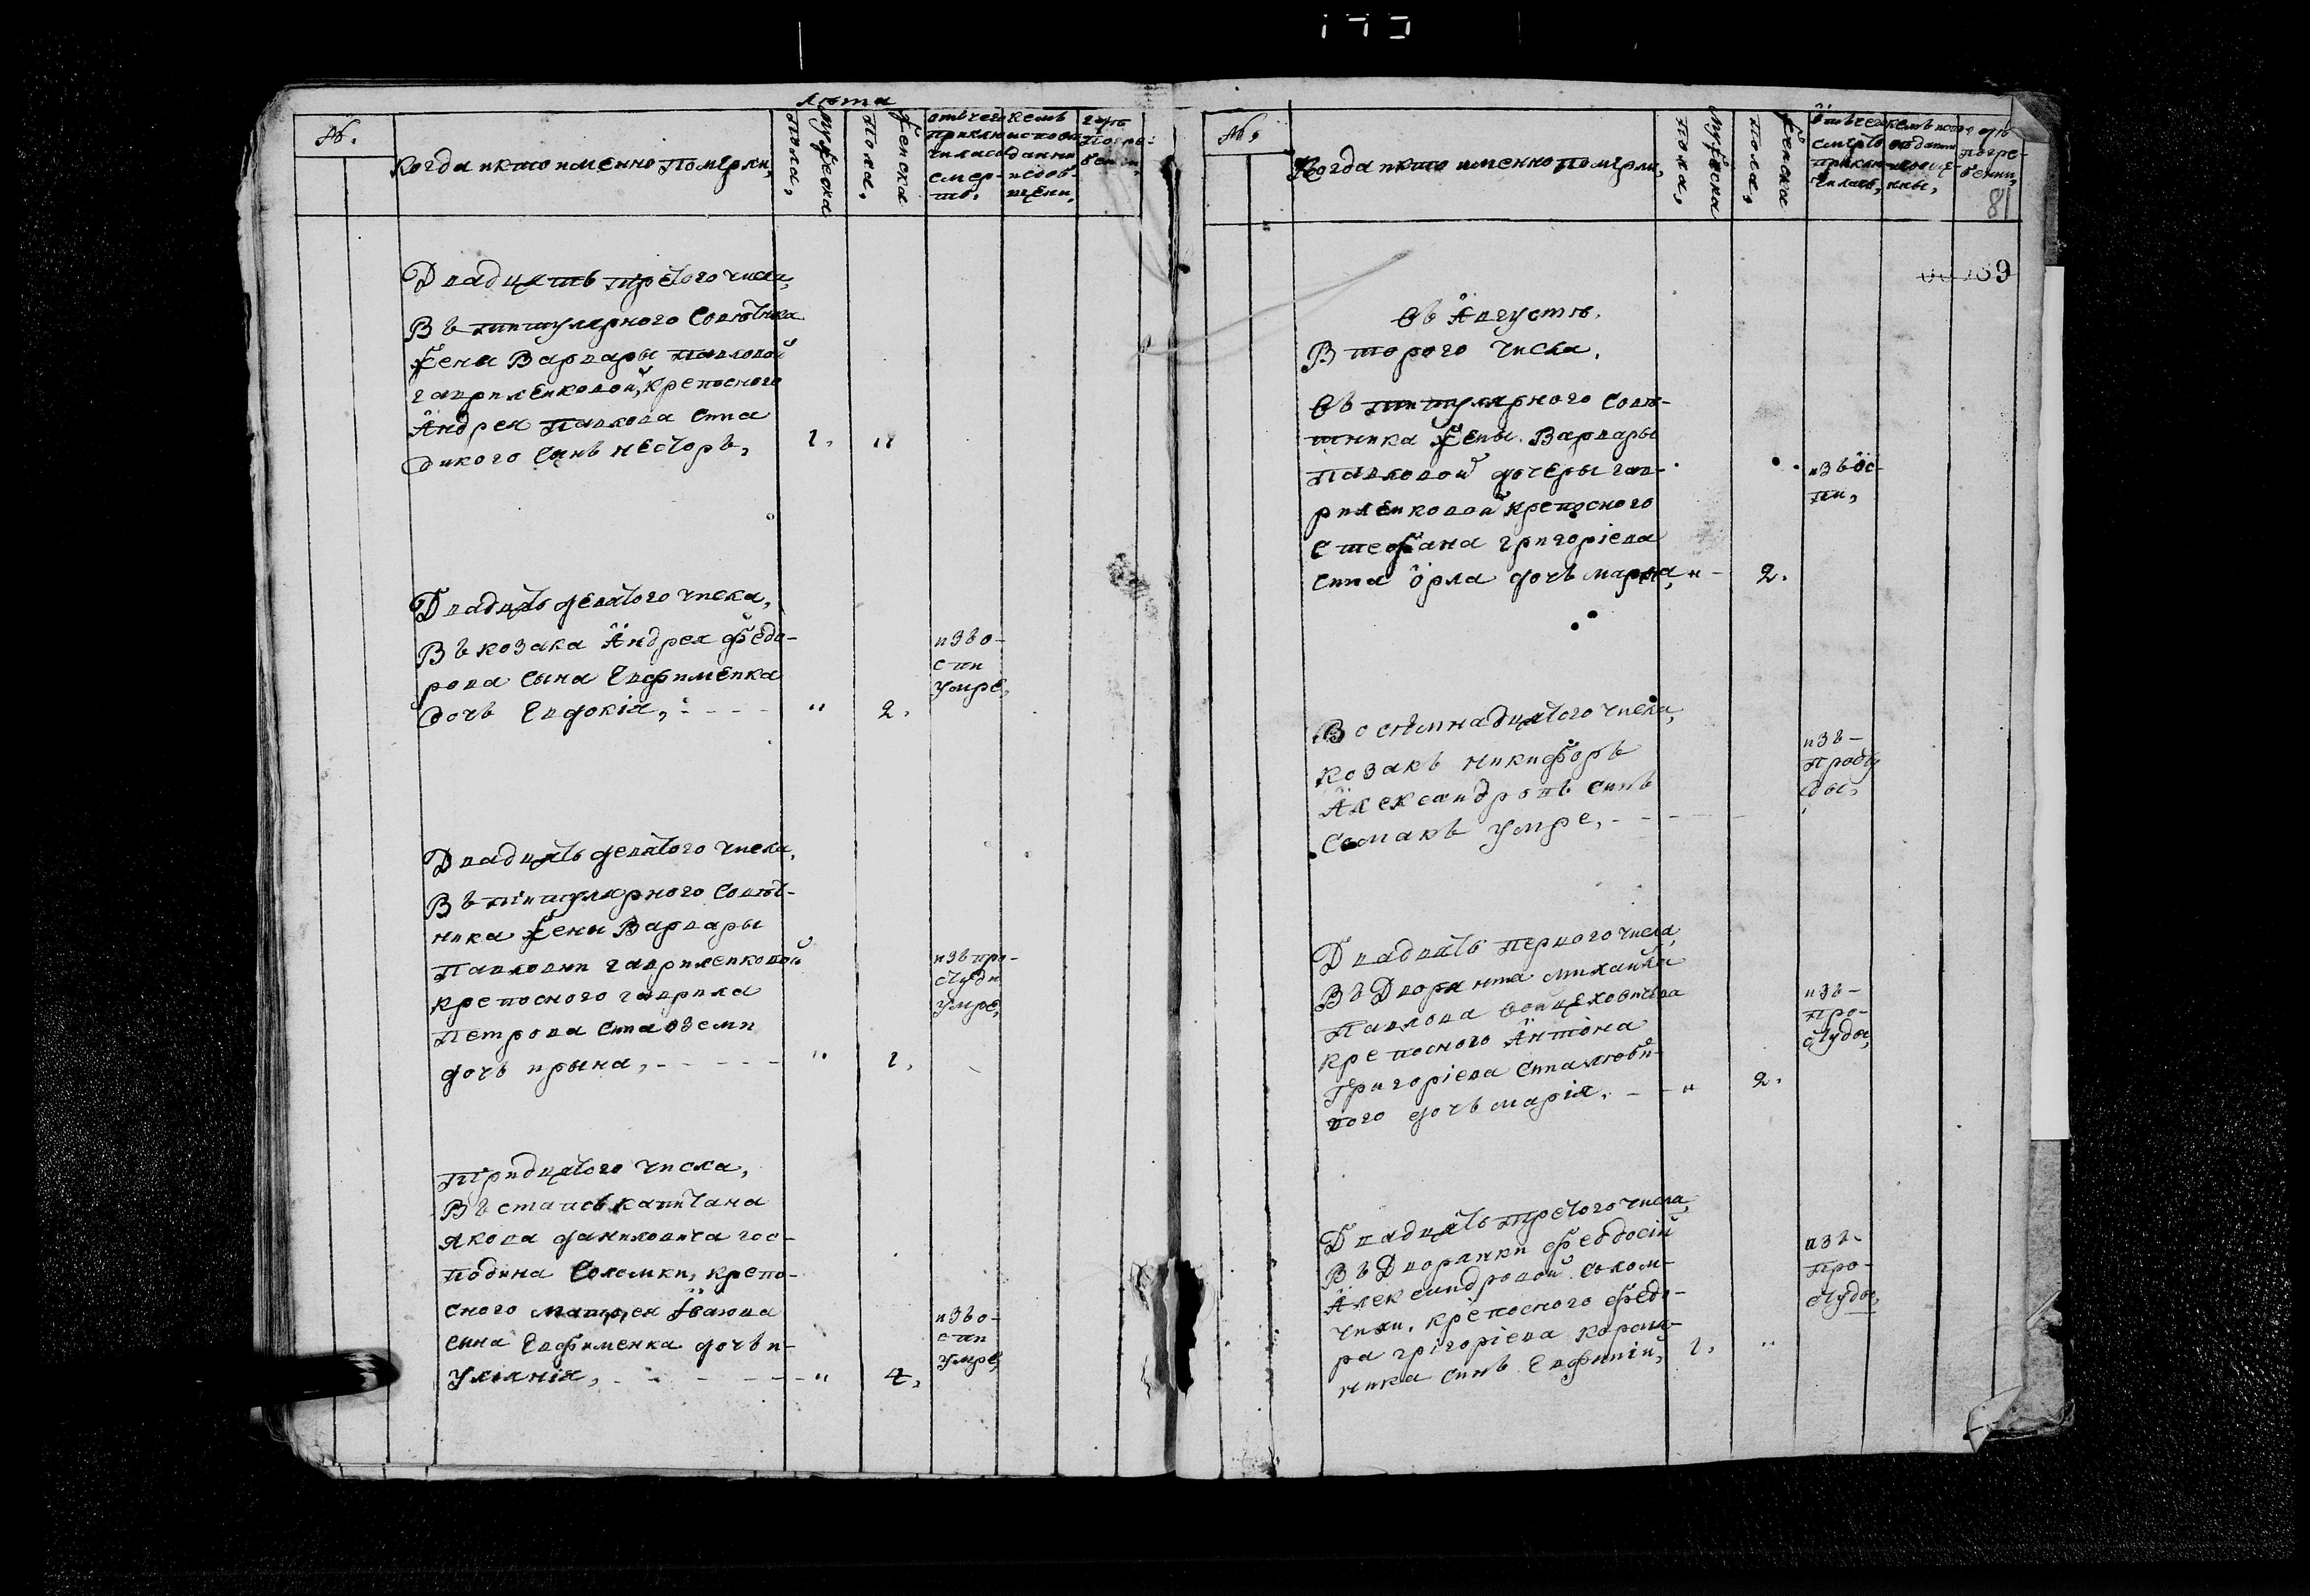 лѣта
№.
Когда и кто именно померли,
Мужеска
пола,
Женска
пола,
отъ чего
приклю
чилась
смер-
ть,
кемъ
исповѣ
данни
и сооб-
щени,
гдѣ
погре-
бени,
Двадцять третого числа,
Въ титулярного Совѣтника
жени Варвары Павловой
гавриленковой, крепосного
Андрея Павлова Сина
дикого Синъ несторъ,
1.
"
Двадцять девятого числа,
Въ козака Андрея Федо-
рова Сына Евфименка
дочь Евдокія,
"
2.
изъ о-
спи
умре,
Двадцять девятого числа,
Въ титулярного Совѣт-
ника жени Варвары
Павловни гавриленковой
крепосного гаврила
Петрова Сина Оземи
дочь ирына,
"
1,
изъ про-
студи
умре,
Тридцятого числа,
Въ стапсъ капитана
якова даниловича гос-
подина Соломки, крепо-
сного
сина Евфименка дочь и-
улиянія,
"
4,
изъ о-
спи
умре,
№,
Когда и кто именно померли,
Мужеска
пола,
Женска
пола,
отъ чего
смерть
приклю-
чилась,
кемъ испо
вѣданни
и сооще-
нны,
гдѣ
погре-
бенни,
81
89
Въ Августѣ.
Второго числа,
Въ титулярного Совѣ-
тника жены Варвары
Павловой дочеры гав-
риленковой крепосного
Стефана григоріева
Сина Орла дочь марфа,
"
2.
изъ ос-
пи,
Восѣмнадцятого числа,
козакъ никифоръ
Александровъ Синъ
Семакъ умре,
изъ
Двадцять первого числа
Въ Дворянина михайла
Павлова Войцеховича
крепосного Антона
Григоріева Сина люби-
вого дочь марія,
"
2.
изъ
про-
студы,
Двадцять третого числа,
Въ Дворянки феодосіи
Александровой Солом-
чихи, крепосного федо-
ра григоріева
ника Синъ Евфимій,
1.
"
изъ
про-
студы,